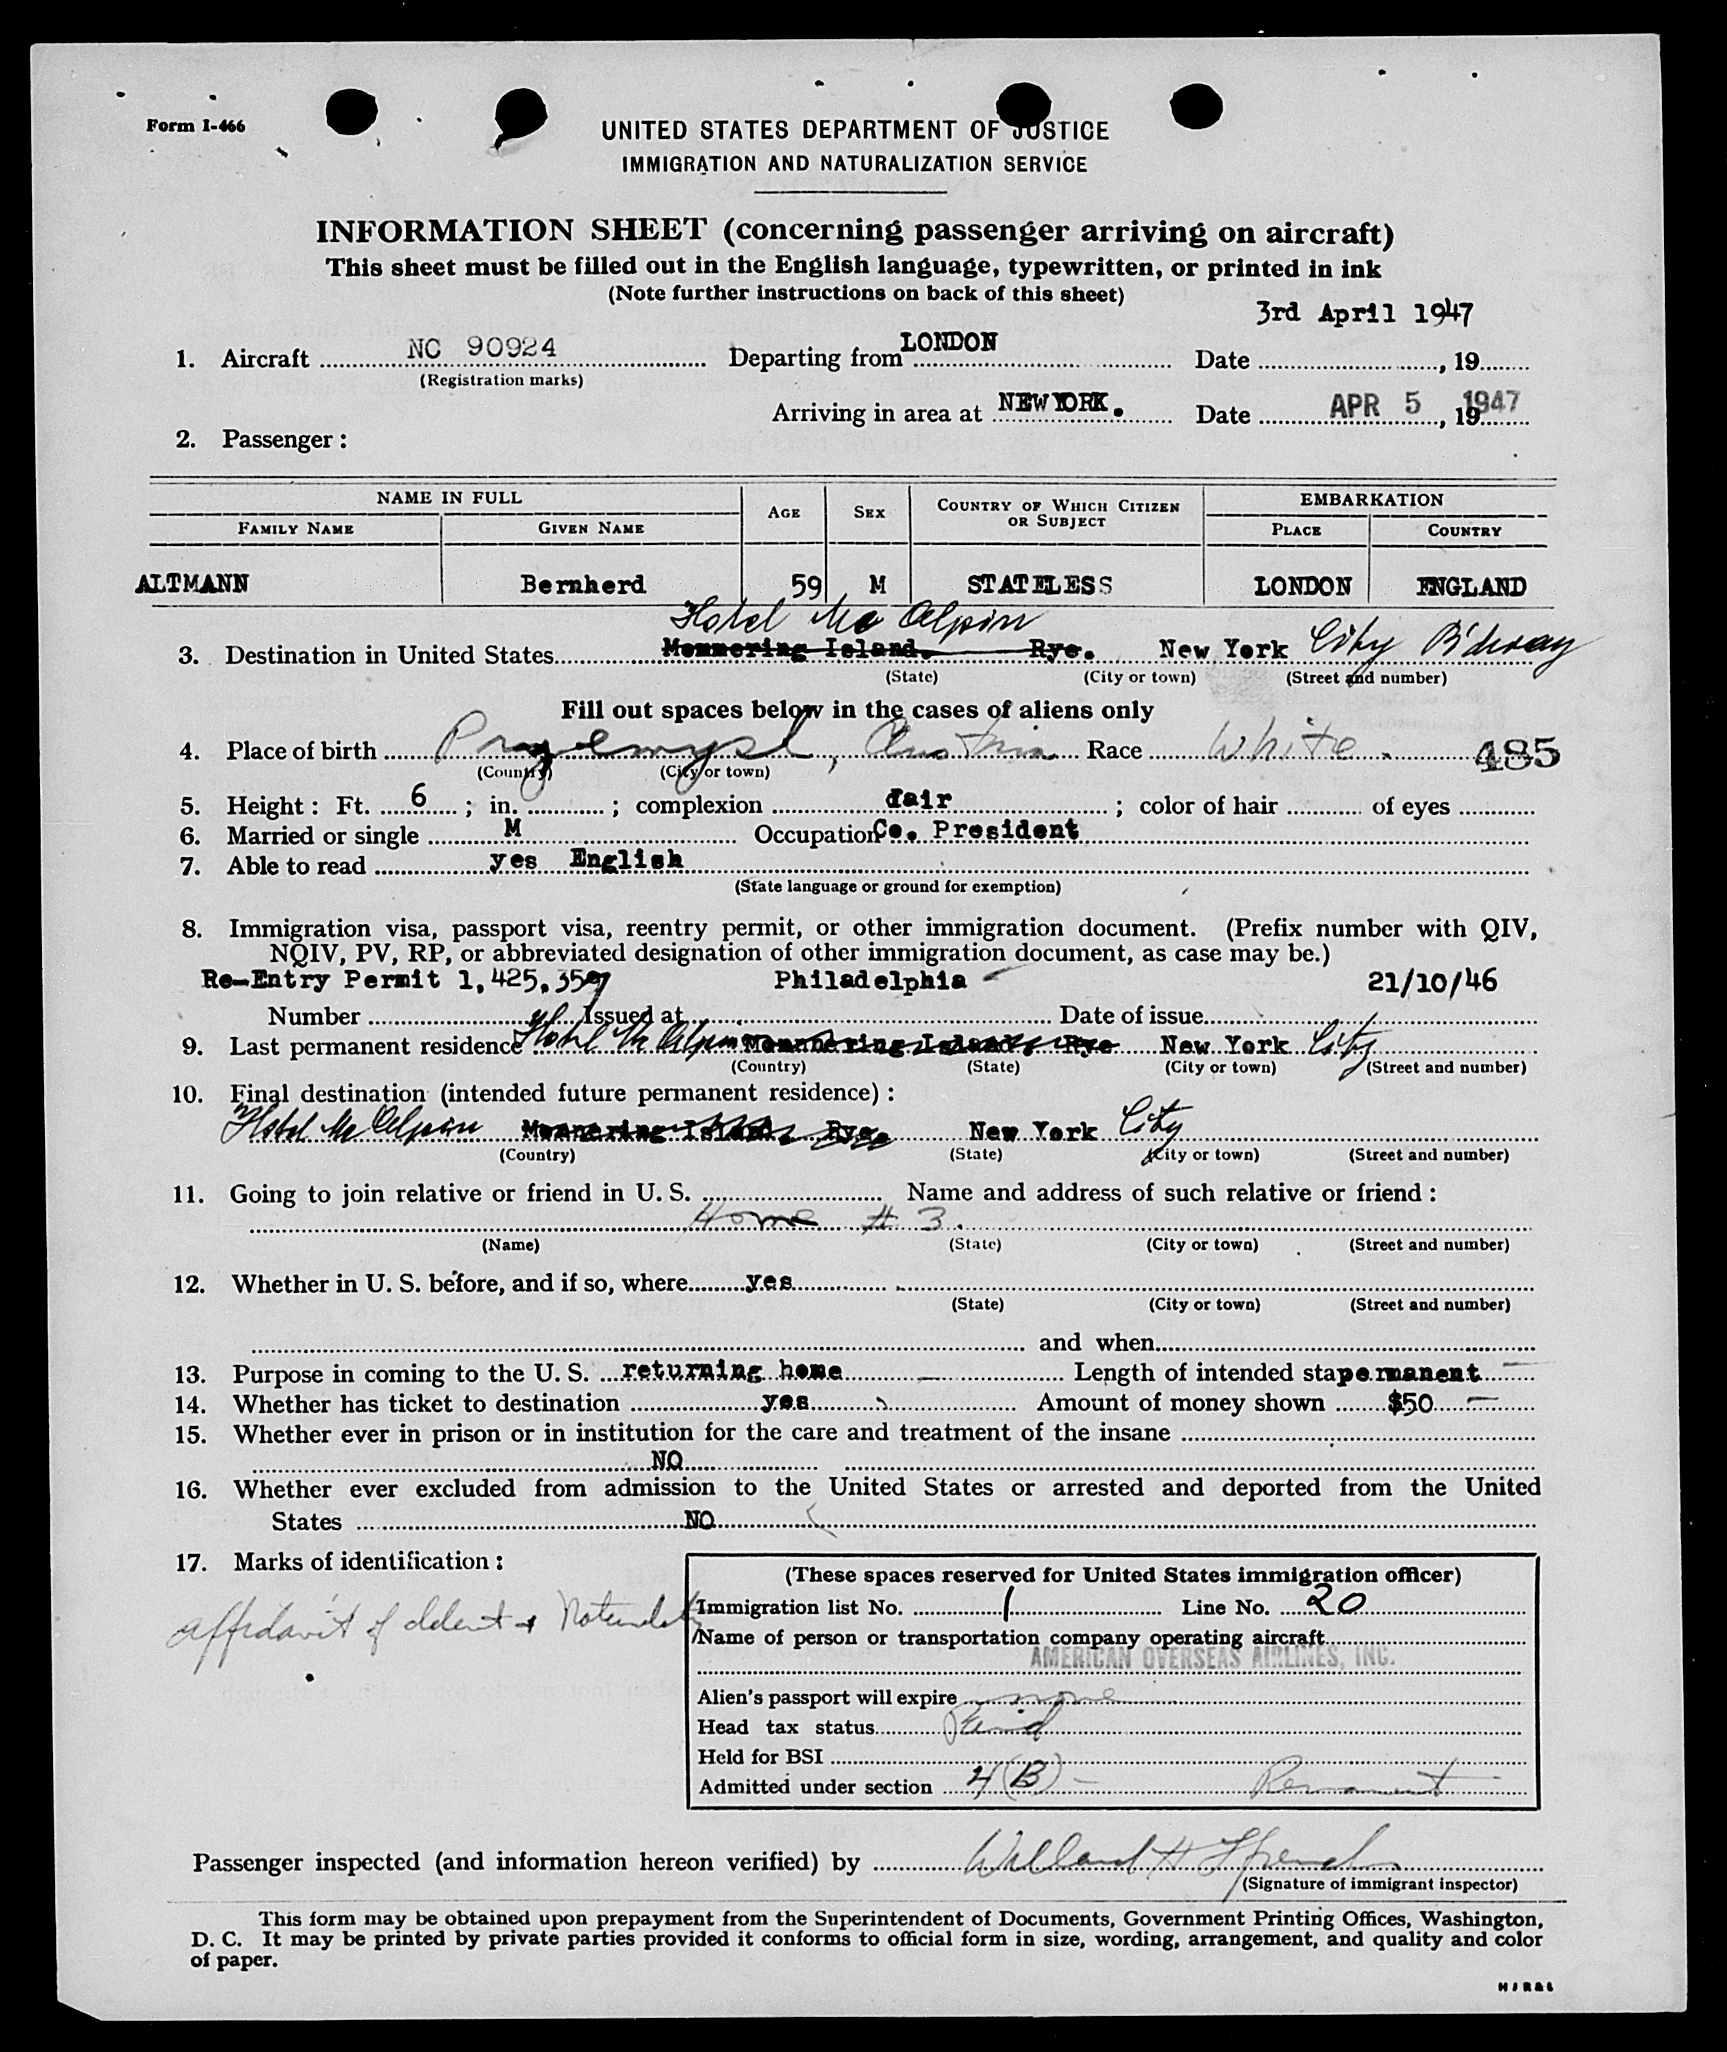 Form I-466
UNITED STATES DEPARTMENT OF JUSTICE
IMMIGRATION AND NATURALIZATION SERVICE
INFORMATION SHEET (concerning passenger arriving on aircraft)
This sheet must be filled out in the English language, typewritten, or printed in ink
(Note further instructions on back of this sheet)
3rd April 1947
1. Aircraft NC 90924 Departing from LONDON Date , 19
(Registration marks)
Arriving in area at NEW YORK. Date APR 5 1947, 19
2. Passenger :
NAME IN FULL AGE SEX COUNTRY OF WHICH CITIZEN OR SUBJECT EMBARKATION
FAMILY NAME GIVEN NAME PLACE COUNTRY
ALTMANN Bernherd 59 M STATELESS LONDON ENGLAND
Hotel Mc Alpin
3. Destination in United States Rye. New York City B'dway
(State) (City or town) (Street and number)
Fill out spaces below in the cases of aliens only
4. Place of birth Przemysl, Austria Race White. 485
(Country) (City or town)
5. Height : Ft. 6 ; in. ; complexion fair ; color of hair of eyes
6. Married or single M Occupation Co. President
7. Able to read yes English
(State language or ground for exemption)
8. Immigration visa, passport visa, reentry permit, or other immigration document. (Prefix number with QIV,
NQIV, PV, RP, or abbreviated designation of other immigration document, as case may be.)
Re-Entry Permit 1,425,359 Philadelphia 21/10/46
Number Issued at Date of issue
9. Last permanent residence Hotel Mc Alpin Rye New York City
(Country) (State) (City or town) (Street and number)
10. Final destination (intended future permanent residence) :
Hotel Mc Alpin Rye. New York City
(Country) (State) (City or town) (Street and number)
11. Going to join relative or friend in U. S. Name and address of such relative or friend :
Home # 3.
(Name) (State) (City or town) (Street and number)
12. Whether in U. S. before, and if so, where yes
(State) (City or town) (Street and number)
and when
13. Purpose in coming to the U. S. returning home Length of intended sta permanent
14. Whether has ticket to destination yes Amount of money shown $50
15. Whether ever in prison or in institution for the care and treatment of the insane
NO
16. Whether ever excluded from admission to the United States or arrested and deported from the United
States NO
17. Marks of identification :
affidavit of
(These spaces reserved for United States immigration officer)
Immigration list No. 1 Line No. 20
Name of person or transportation company operating aircraft
AMERICAN OVERSEAS AIRLINES, INC.
Alien's passport will expire none
Head tax status Paid
Held for BSI
Admitted under section 4(B) - Permanent
Passenger inspected (and information hereon verified) by Willard H
(Signature of immigrant inspector)
This form may be obtained upon prepayment from the Superintendent of Documents, Government Printing Offices, Washington,
D. C. It may be printed by private parties provided it conforms to official form in size, wording, arrangement, and quality and color
of paper.